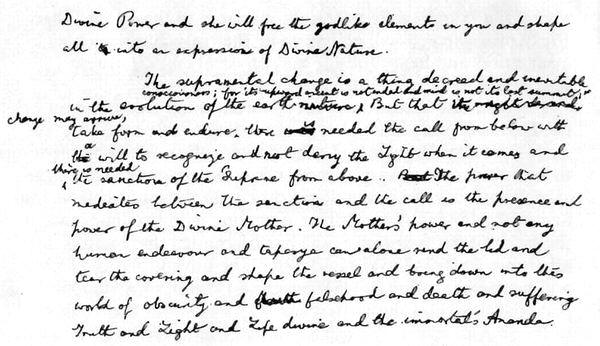 Divine Power and she will free the godlike elements in you and shape
all into a expression of Divine Nature.
The supramental change is a thing decreed and inevitable
consciousness; for its upward ascent is not ended and mind is not its last summit;
in the evolution of the earth But that
change may arrive,
take form and endure, there is needed the call from below with
a will to recognize and not deny the Light when it comes and
there is needed
the sanction of the Supreme from above. The power that
mediates between the sanction and the call is the presence and
power of the Divine Mother. The Mother's power and not any
human endeavour and tapasya can alone rend the lid and
tear the covering and shape the vessel and bring down into this
world of obscurity and falsehood and death and suffering
Truth and Light and Life divine and the immortal's Ananda.